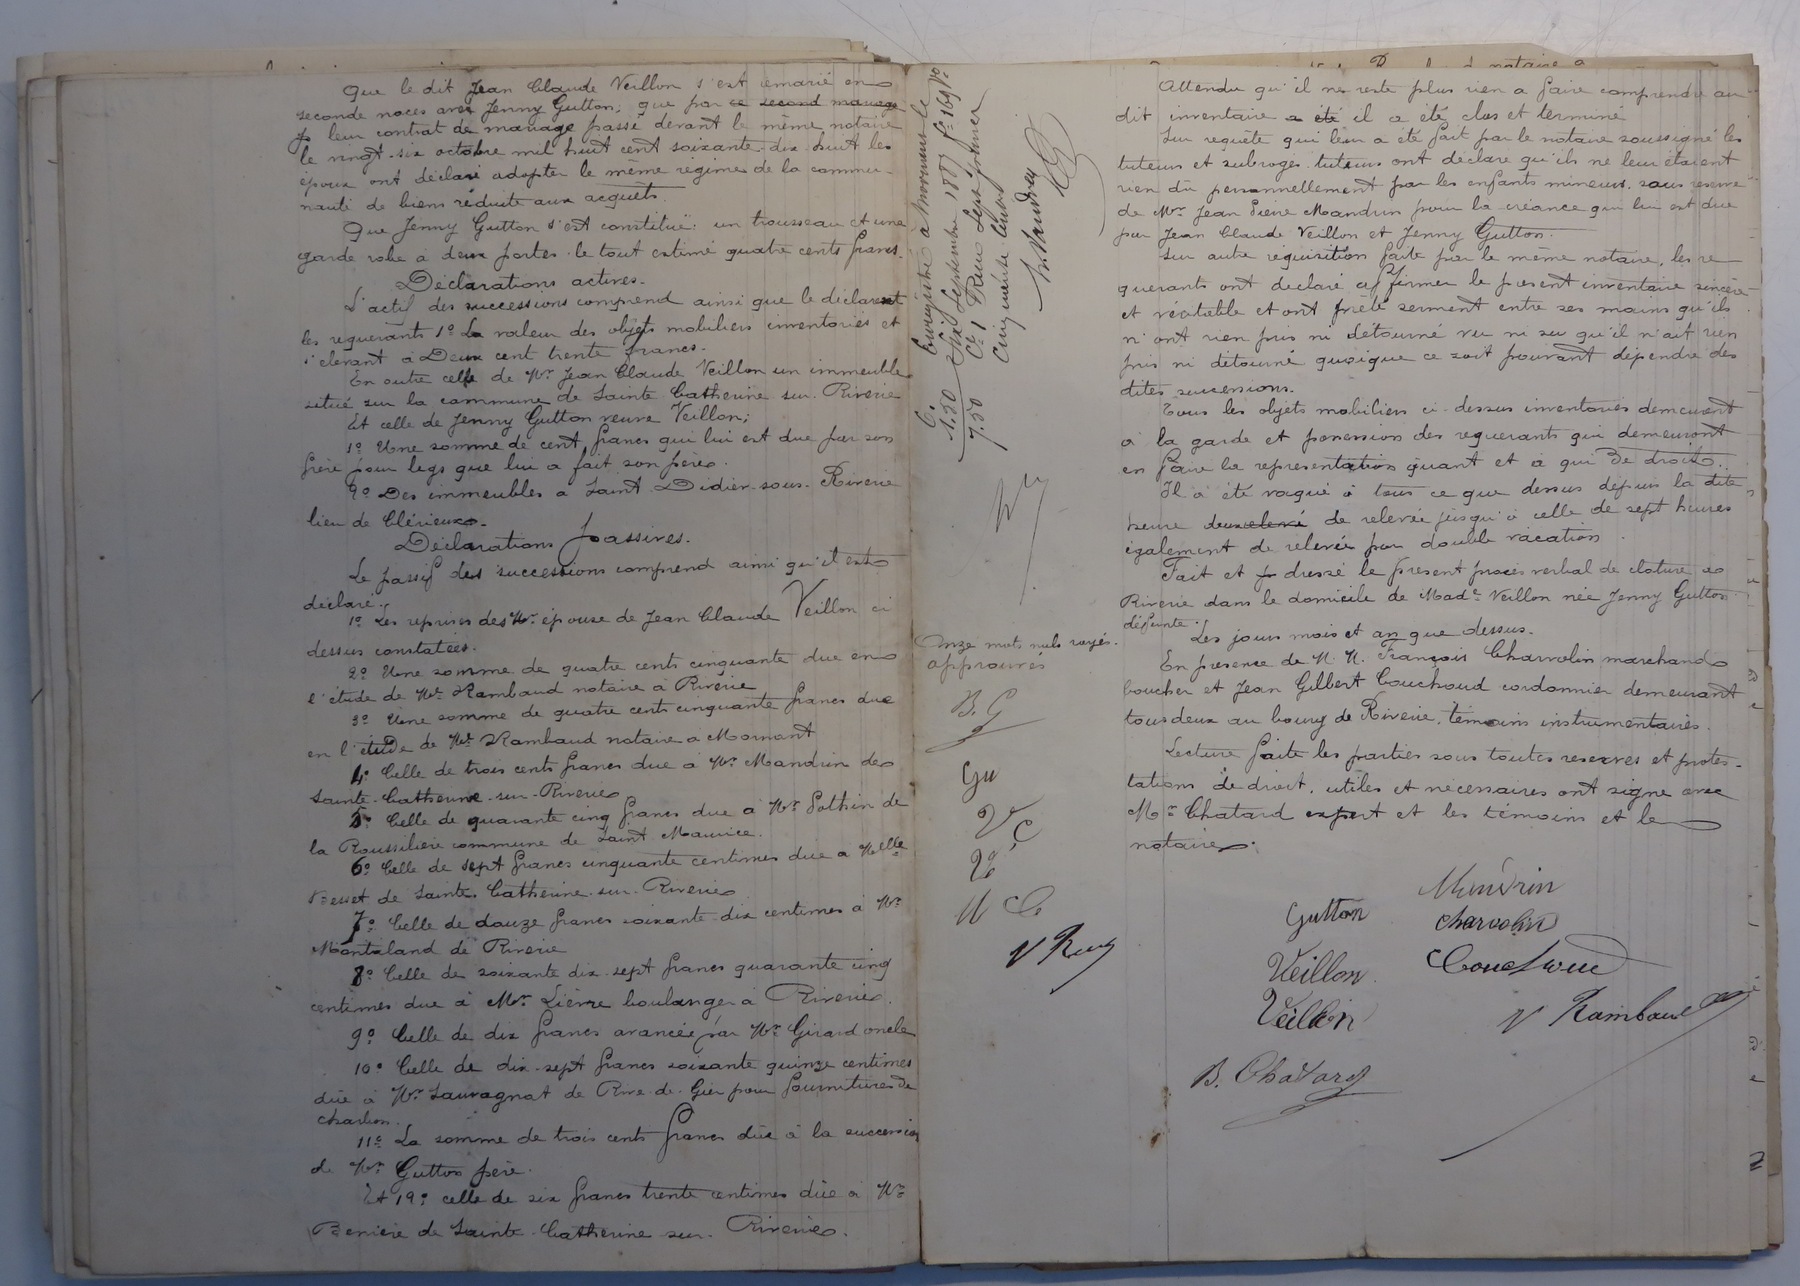 Que le dit Jean Claude Veillon s'est remarié en
seconde noces avec Jenny Gutton; que par ce second mariage
leur contrat de mariage passé devant le même notaire
le vingt-six octobre mil huit cent soixante-dix-huit les
époux ont déclaré adopter le même régime de la commu-
nauté de biens réduite aux acquets.
Que Jenny Gutton s'est constitué: un trousseau et une
garde robe a deux portes le tout estimé quatre cents francs.
Déclarations actives.
L'actif des successions comprend ainsi que le déclarent
les requérants 1º La valeur des objets mobiliers inventoriés et
s'elevant à Deux cent trente francs.
En outre celle de Mr Jean Claude Veillon un immeuble
situé sur la commune de Sainte Catherine sur Riverie
Et celle de Jenny Gutton veuve Veillon;
1º Une somme de cent francs qui lui est due par son
frère pour legs que lui a fait son père.
2º Des immeubles a Saint-Didier-sous-Riverie
lieu de Clérieux.
Déclarations passives.
Le passif des successions comprend ainsi qu'il est
déclaré.
1º Les reprises des épouse de Jean Claude Veillon ci
dessus constatées.
2º Une somme de quatre cents cinquante due en
l'étude de Me Rambaud notaire à Riverie
3º Une somme de quatre cents cinquante francs due
en l'étude de Me Rambaud notaire a Mornant
4º Celle de trois cents francs due à Mr Mandrin de
Sainte-Catherine-sur-Riverie
5º Celle de quarante cinq francs due à Mr Pothin de
la Roussilière commune de Saint Maurice.
6º Celle de sept francs cinquante centimes due a Melle
Besset de Sainte Catherine-sur-Riverie
7º Celle de douze francs soixante-dix centimes à Mr
Montaland de Riverie
8º Celle de soixante dix-sept francs quarante cinq
centimes due à Mr Lièvre boulanger à Riverie.
9º Celle de dix francs avancée par Mr Girard oncle
10º Celle de dix-sept francs soixante quinze centimes
due à Mr Sauvagnat de Rive-de-Gier pour fournitures de
charbon.
11º La somme de trois cents francs due à la succession
de Mr Gutton père.
Et 12º celle de six francs trente centimes due à Mr
de Sainte-Catherine-sur-Riverie.
Enregistré a Mornant le
Six Septembre 1887 fº 169 Vº
Cº 1 Reçu Sept francs
cinquante cent
6.
1.50
7.50
Onze mots nuls rayés
approuvés
B. G
Gu
V
C
Ve
M Ch
V Ra
Attendu qu'il ne reste plus rien a faire comprendre au
dit inventaire a été il a été clos et terminé
Sur requête qui leur a été fait par le notaire soussigné les
tuteurs et subrogés-tuteurs ont déclare qu'ils ne leur étaient
rien dû personnellement par les enfants mineurs, sous reserve
de Mr Jean Pierre Mandrin pour la créance qui lui est due
par Jean Claude Veillon et Jenny Gutton.
Sur autre réquisition faite par le même notaire, les re
quérants ont déclaré affirmer le présent inventaire sincère
et véritable et ont prêté serment entre ses mains qu'ils
n'ont rien pris ni détourné vu ni su qu'il n'ait rien
pris ni détourné quoique ce soit pouvant dépendre des
dites successions.
Tous les objets mobiliers ci-dessus inventoriés demeurent
à la garde et possession des requérants qui demeuront
en faire la representation quant et à qui de droit.
Il a été vaqué à tous ce que dessus depuis la dite
heure de relevée jusqu'à celle de sept heures
également de relevée par double vacation.
Fait et dressé le présent procès verbal de cloture a
Riverie dans le domicile de Made Veillon née Jenny Gutton
défunte.
Les jours mois et an que dessus.
En présence de M. M. François Charvolin marchand
boucher et Jean Gilbert Couchoud cordonnier demeurant
tous deux au bourg de Riverie, témoins instrumentaires.
Lecture faite les parties sous toutes reserves et protes-
tations de droit, utiles et nécessaires ont signe avec
Mr Chatard expert et les témoins et le
notaire.
Mandrin
Gutton
Charvolin
Veillon
Couchoud
Veillon
V Rambaud
B. Chatard